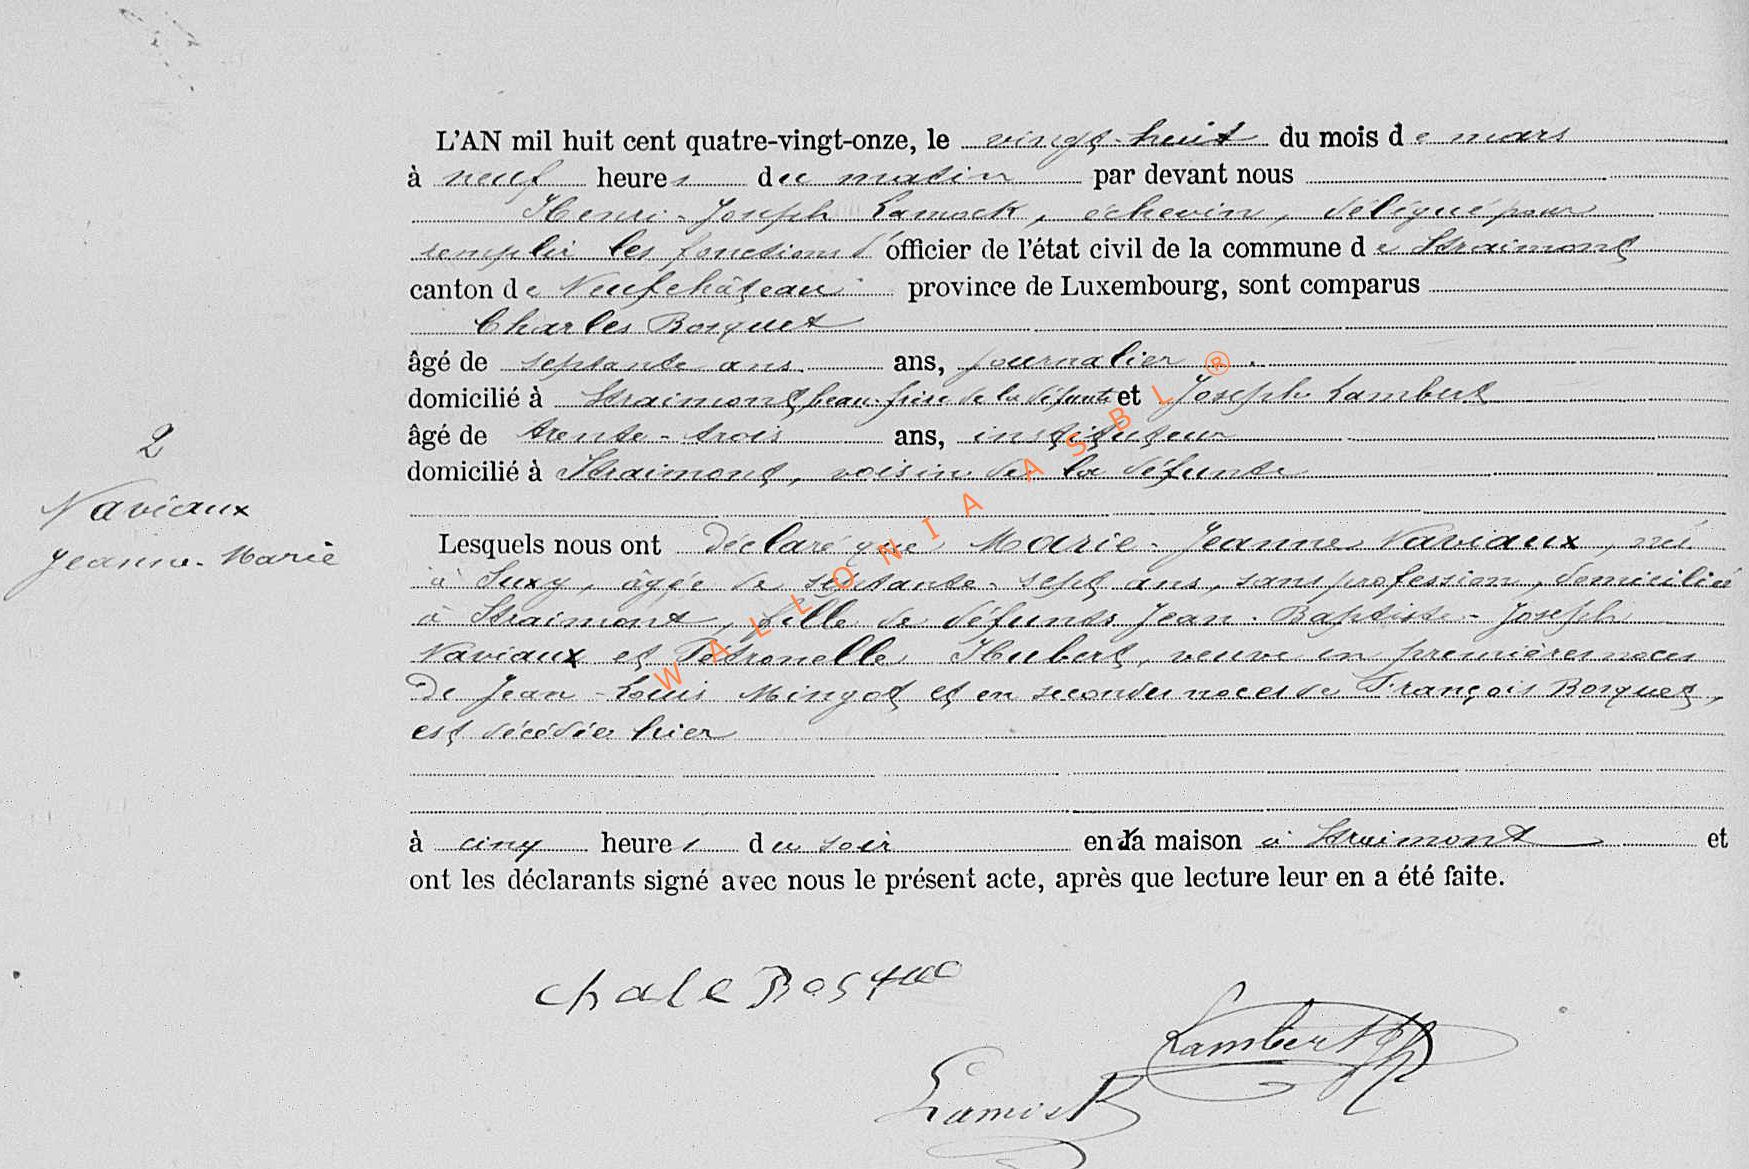 L'AN mil huit cent quatre-vingt-onze, le vingt-huit du mois de mars
à neuf heures du matin par devant nous
Henri-Joseph Lamock, échevin, délégué pour
remplir les fonctions d'officier de l'état civil de la commune de Straimont
canton de Neufchâteau province de Luxembourg, sont comparus
Charles Bosquet
âgé de septante ans ans, journalier
domicilié à Straimont beau-frère de la défunte et Joseph Lambert
âgé de trente-trois ans, instituteur
domicilié à Straimont, voisin de la défunte
2
Naviaux
Jeanne-Marie
Lesquels nous ont déclaré que Marie-Jeanne Naviaux, née
à Suxy, âgée de septante-sept ans, sans profession, domiciliée
à Straimont, fille de défunts Jean-Baptiste-Joseph
Naviaux et Pétronelle Hubert, veuve en premières noces
de Jean-Louis Mingot et en secondes noces de François Bosquet,
est décédée hier
à cinq heures du soir en sa maison à Straimont et
ont les déclarants signé avec nous le présent acte, après que lecture leur en a été faite.
chale Bosque
Lambert Jh
WALLONIA ASBL ®